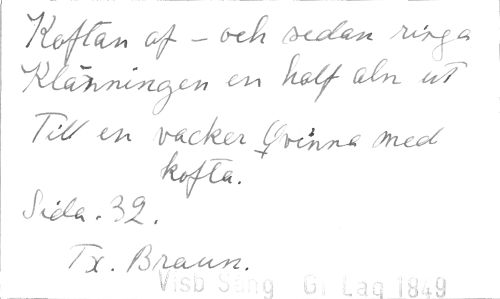 Koftan af – och sedan ringa
Klänningen en half aln ut
Till en vacker Qvinna med
kofta.
Sida. 32.
Tx. Braun.
Visb Sång Gl Lag 1849